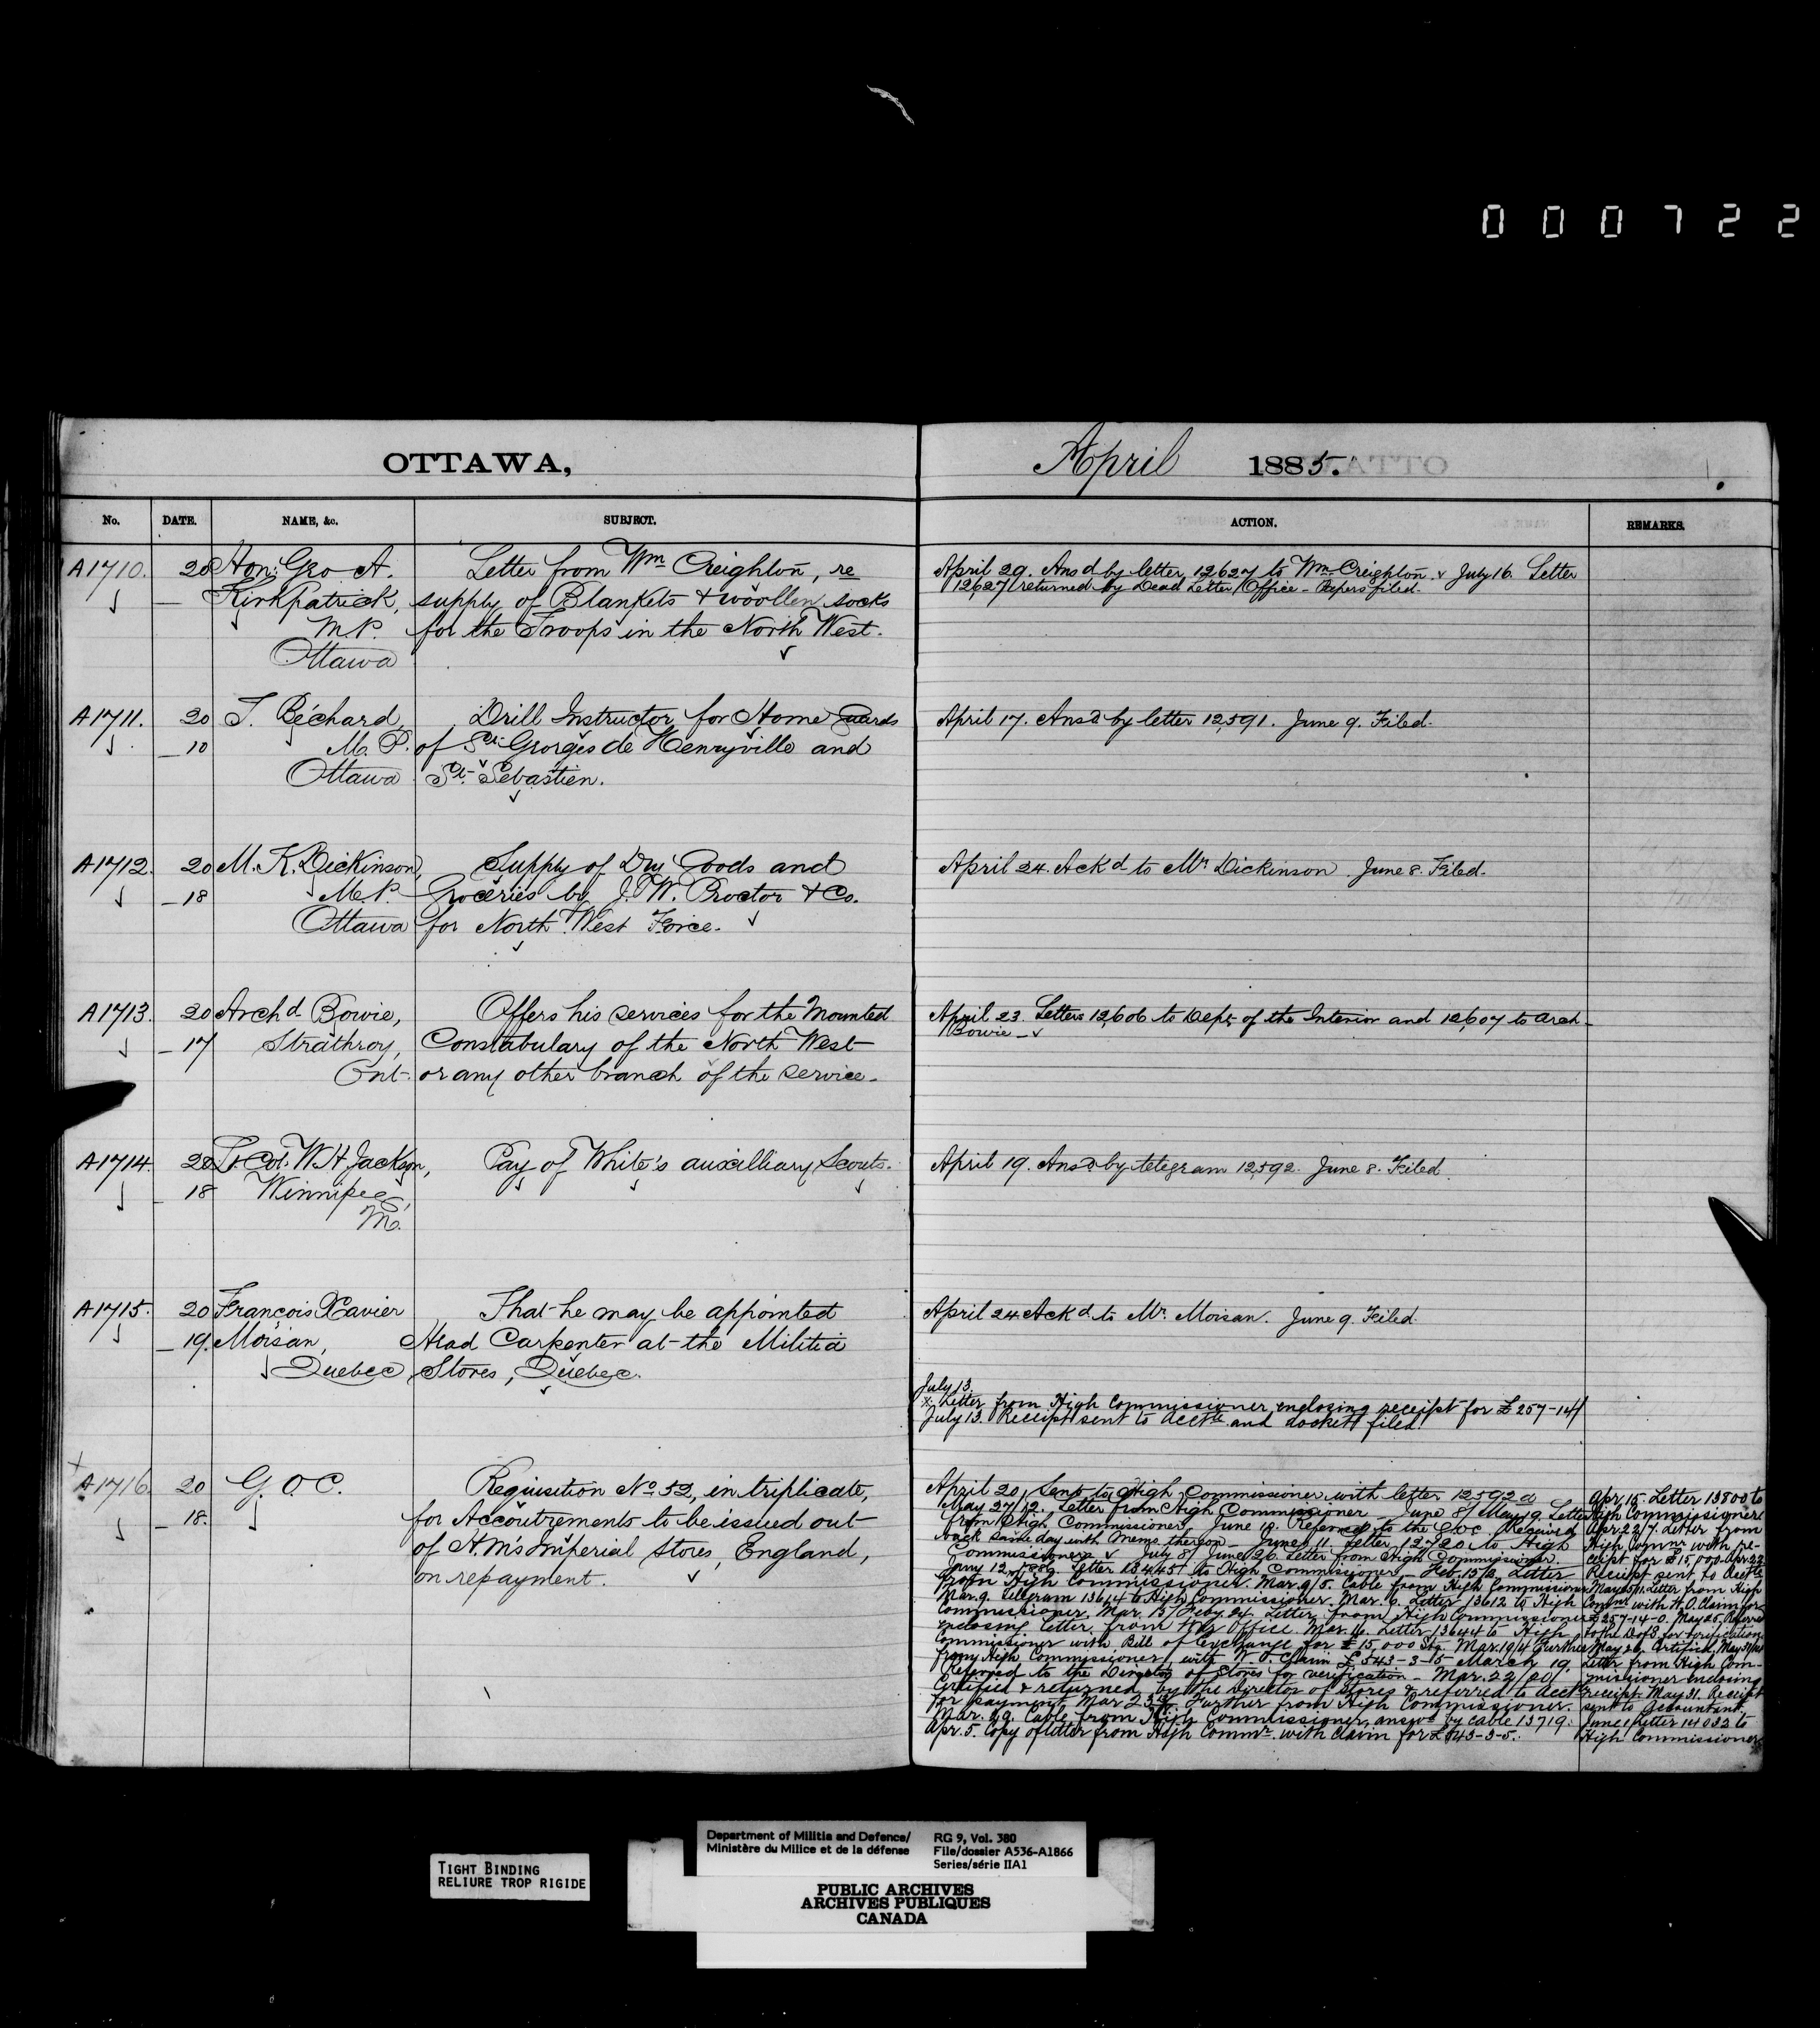 000722
OTTAWA,
April 1885.
No.
DATE.
NAME, &c.
SUBJECT.
ACTION.
REMARKS.
A1710. 20 Hon: Geo A. Letter from Wm Creighton, re
Kirkpatrick, supply of Blankets & woollen socks
M.P. for the Troops in the North West.
Ottawa
April 29. Ansd by letter 12627 to Wm Creighton. July 16. Letter
12627 returned by Dead Letter Office - Papers filed.
A1711. 20 Béchard, Drill Instructor for Home Guards
10 M.P. of St. Georges de Henryville and
Ottawa St. Sebastien.
April 17. Ansd by letter 12,591. June 9. Filed.
A1712. 20 M. K. Dickinson, Supply of Dry Goods and
18 M.P. Groceries by J. W. Proctor & Co.
Ottawa for North West Force.
April 24. Ackd to Mr Dickinson. June 8. Filed.
A1713. 20 Archd Bowie, Offers his services for the Mounted
17 Strathroy, Constabulary of the North West
Ont. or any other branch of the service.
April 23. Letters 12,606 to Dept. of the Interior and 12,607 to Arch
Bowie
A1714. 20 Lt. Col. W. H. Jackson, Pay of White's auxilliary Scouts.
18 Winnipeg,
M.
April 19. Ansd by telegram 12,592. June 8. Filed.
A1715. 20 François Xavier That he may be appointed
19. Moisan, Head Carpenter at the Militia
Quebec Stores, Quebec.
April 24 Ackd to Mr. Moisan. June 9. Filed.
July 13
x Letter from High Commissioner enclosing receipt for £257-14/
July 13. Receipt sent to Acctt. and docket filed.
x
A1716. 20 G. O. C. Requisition No 52, in triplicate,
18. for Accoutrements to be issued out
of H.M's Imperial Stores, England,
on repayment.
April 20. Sent to High Commissioner with letter 12592a
May 27/12. Letter from High Commissioner June 8/May 19 Letter
from High Commissioner. June 10. Referred to the G.O.C. Received
back same day with memo thereon June 11. Letter 12720 to High
Commissioner July 8/ June 26. Letter from High Commissioner.
Jany 12, 1886. Letter to High Commissioner. Feb. 15/ Letter
from High Commissioner. Mar. 9/5. Cable from High Commissioner
Mar. 9. Telegram 13614 to High Commissioner. Mar. 6. Letter 13612 to High
Commissioner. Mar. 15/Feby 24 Letter from High Commissioner
enclosing letter from War Office. Mar. 16. Letter 13644 to High
Commissioner with Bill of Exchange for £15,000 Stg. Mar. 19/4 Further
from High Commissioner with W.O. Claim £543-3-5 March 19,
Referred to the Director of Stores for verification - Mar. 22/20/
Certified & returned by the Director of Stores & referred to Acctt
for payment Mar 23. Further from High Commissioner.
Mar. 29. Cable from High Commissioner, answd by cable 13719.
Apr. 5. Copy of letter from High Commr. with Claim for £543-3-5.
Apr. 15. Letter 13800 to
High Commissioner
Apr. 22/7. Letter from
High Commr with re-
ceipt for £15,000. Apr. 22
Receipt sent to Acctt
May 25/11. Letter from High
Commr with W.O. Claim for
£257-14-0. May 25, Referred
to the D of S for verification
May 26. Certified. May 31/
Letter from High Com-
missioner enclosing
receipt. May 31. Receipt
sent to Accountant.
June 1 Letter 14032 to
High Commissioner
TIGHT BINDING
RELIURE TROP RIGIDE
Department of Militia and Defence/
Ministère du Milice et de la défense
RG 9, Vol. 380
File/dossier A536-A1866
Series/série IIA1
PUBLIC ARCHIVES
ARCHIVES PUBLIQUES
CANADA